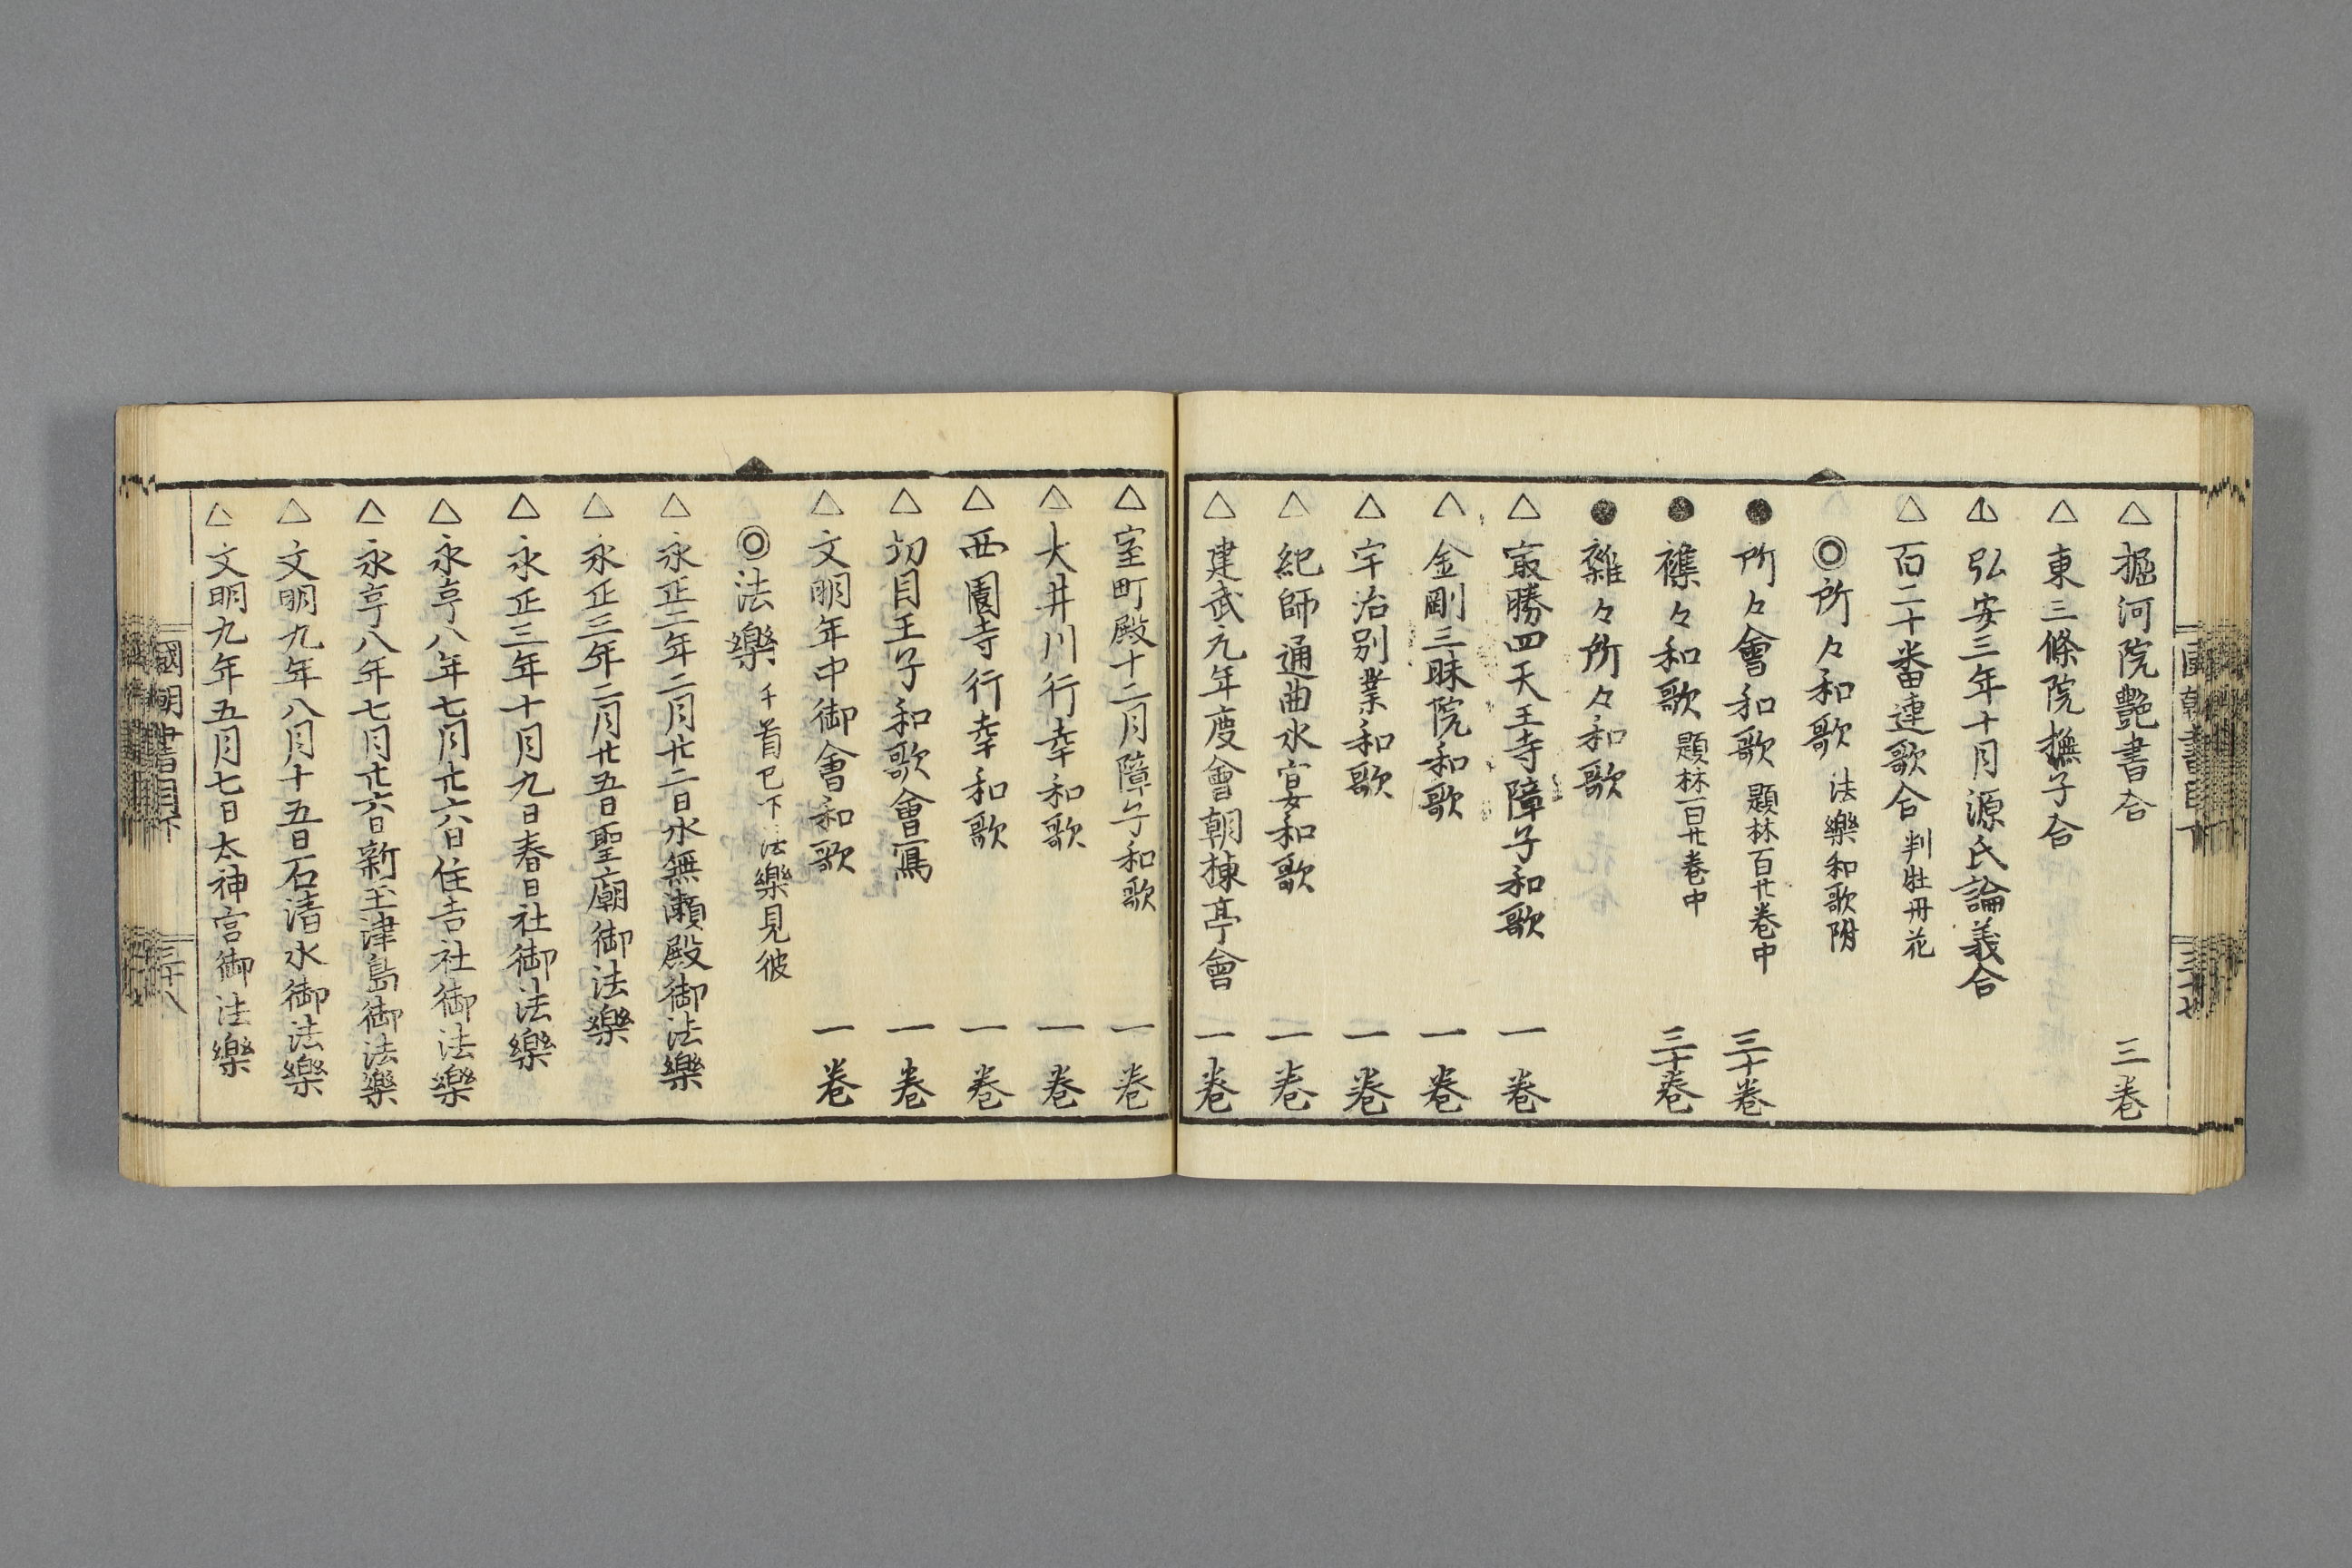 國朝書目下 三十七
△堀河院艷書合 三卷
△東三條院撫子合
△弘安三年十月源氏論義合
△百二十番連歌合 判牡丹花
◎所々和歌 法樂和歌附
●所々會和歌 題林百廿卷中 三十卷
●襍々和歌 題林百廿卷中 三十卷
●雜々所々和歌
△最勝四天王寺障子和歌 一卷
△金剛三昧院和歌 一卷
△宇治別業和歌 一卷
△紀師通曲水宴和歌 一卷
△建武元年度會朝棟亭會 一卷
△室町殿十二月障子和歌 一卷
△大井川行幸和歌 一卷
△西園寺行幸和歌 一卷
△切目王子和歌會寫 一卷
△文明年中御會和歌 一卷
◎法樂 千首已下法樂見彼
△永正二年二月廿二日水無瀬殿御法樂
△永正三年二月廿五日聖廟御法樂
△永正三年十月九日春日社御法樂
△永享八年七月廿六日住吉社御法樂
△永享八年七月廿六日新玉津島御法樂
△文明九年八月十五日石清水御法樂
△文明九年五月七日太神宮御法樂
國朝書目下 三十八